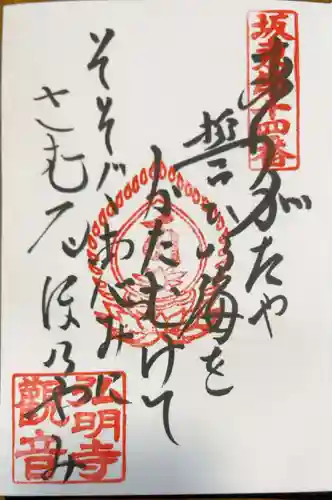 坂東第十四番
あり加たや
誓いの海を
かたむけて
そそぐめぐみに
さむるほ乃やみ
弘明寺
觀音